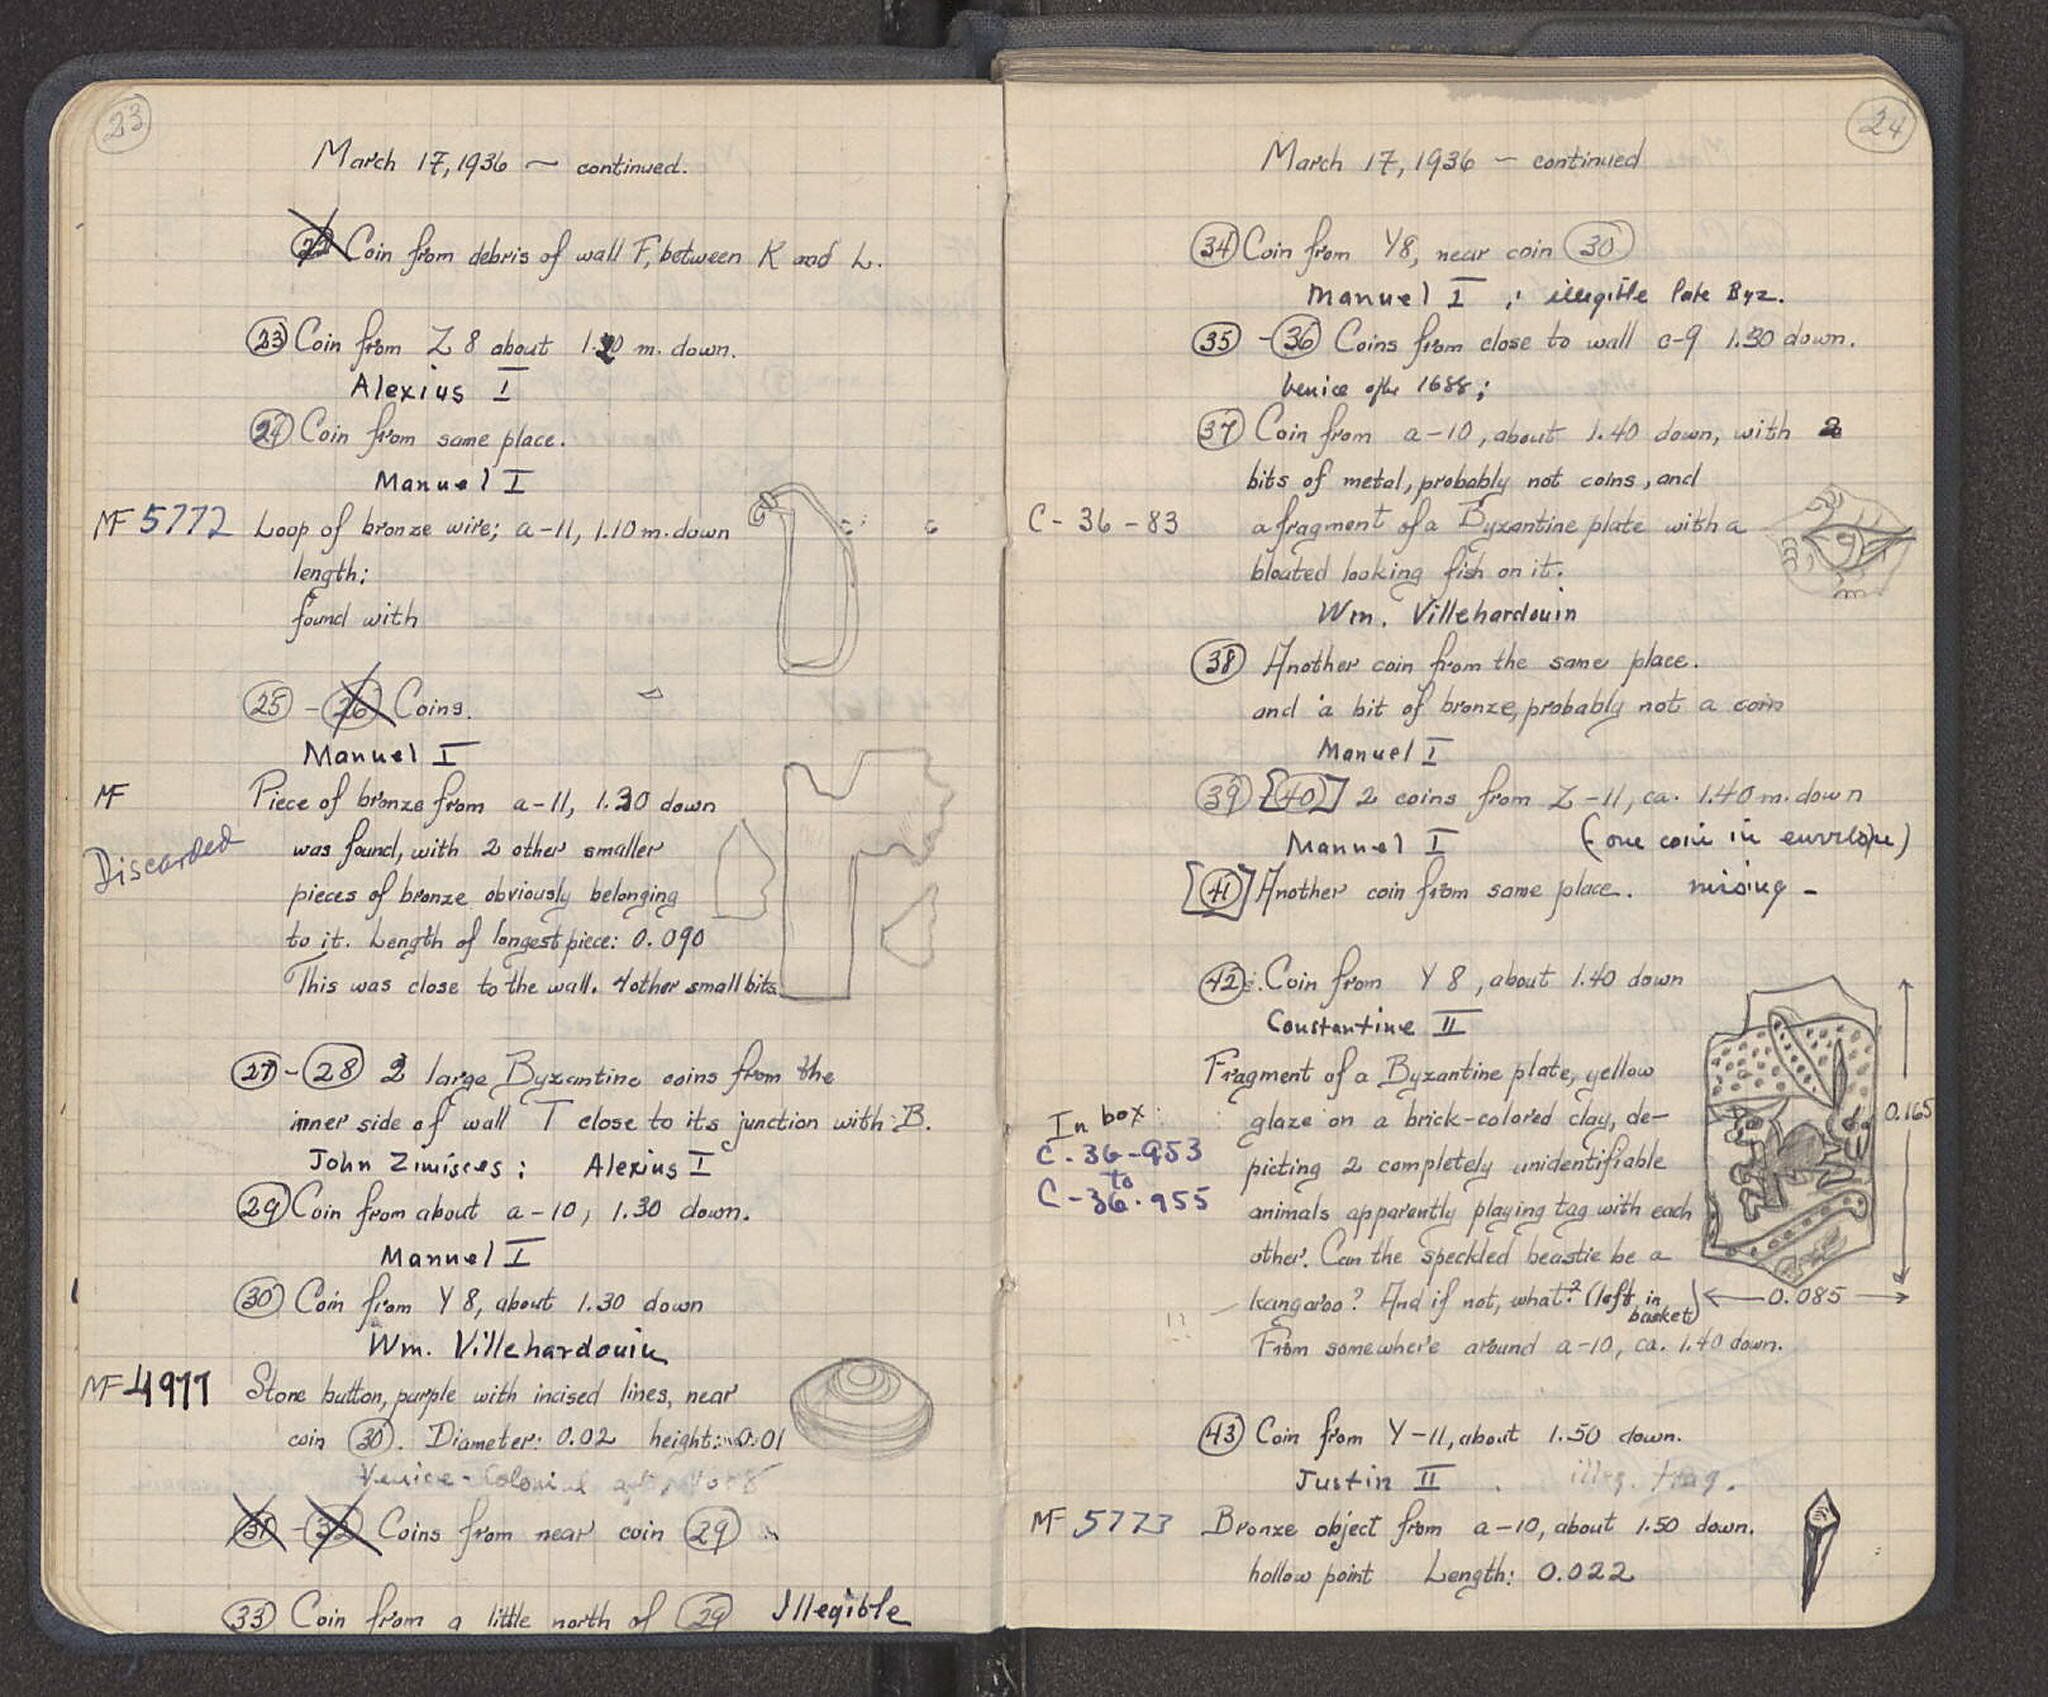 23
March 17, 1936 — continued.
22 Coin from debris of wall F, between K and L.
23 Coin from Z 8 about 1.20 m. down.
Alexius I
24 Coin from same place.
Manuel I
MF 5772 Loop of bronze wire; a-11, 1.10 m. down
length:
found with
25 - 26 Coins.
Manuel I
MF Piece of bronze from a-11, 1.30 down
Discarded
was found, with 2 other smaller
pieces of bronze obviously belonging
to it. Length of longest piece: 0.090
This was close to the wall. 4 other small bits
27 - 28 2 large Byzantine coins from the
inner side of wall T close to its junction with B.
John Zimisces; Alexius I
29 Coin from about a-10, 1.30 down.
Manuel I
30 Coin from Y 8, about 1.30 down
Wm. Villehardouin
MF 4977 Stone button, purple with incised lines, near
coin 30. Diameter: 0.02 height: 0.01
Venice - Colonial
31 - 32 Coins from near coin 29
33 Coin from a little north of 29 Illegible
24
March 17, 1936 — continued
34 Coin from Y8, near coin 30
Manuel I ; illegible late Byz.
35 - 36 Coins from close to wall c-9 1.30 down.
Venice after 1688;
37 Coin from a-10, about 1.40 down, with 2
bits of metal, probably not coins, and
C-36-83 a fragment of a Byzantine plate with a
bloated looking fish on it.
Wm. Villehardouin
38 Another coin from the same place.
and a bit of bronze, probably not a coin
Manuel I
39 [-40] 2 coins from Z-11, ca. 1.40 m. down
Manuel I (one coin in envelope)
[41] Another coin from same place. missing -
42 Coin from Y 8, about 1.40 down
Constantine II
Fragment of a Byzantine plate, yellow
glaze on a brick-colored clay, de-
picting 2 completely unidentifiable
animals apparently playing tag with each
other. Can the speckled beastie be a
kangaroo? And if not, what? (left in basket)
From somewhere around a-10, ca. 1.40 down.
In box:
C-36-953
to
C-36-955
0.165
0.085
43 Coin from Y-11, about 1.50 down.
Justin II . illeg. frag.
MF 5773 Bronze object from a-10, about 1.50 down.
hollow point Length: 0.022